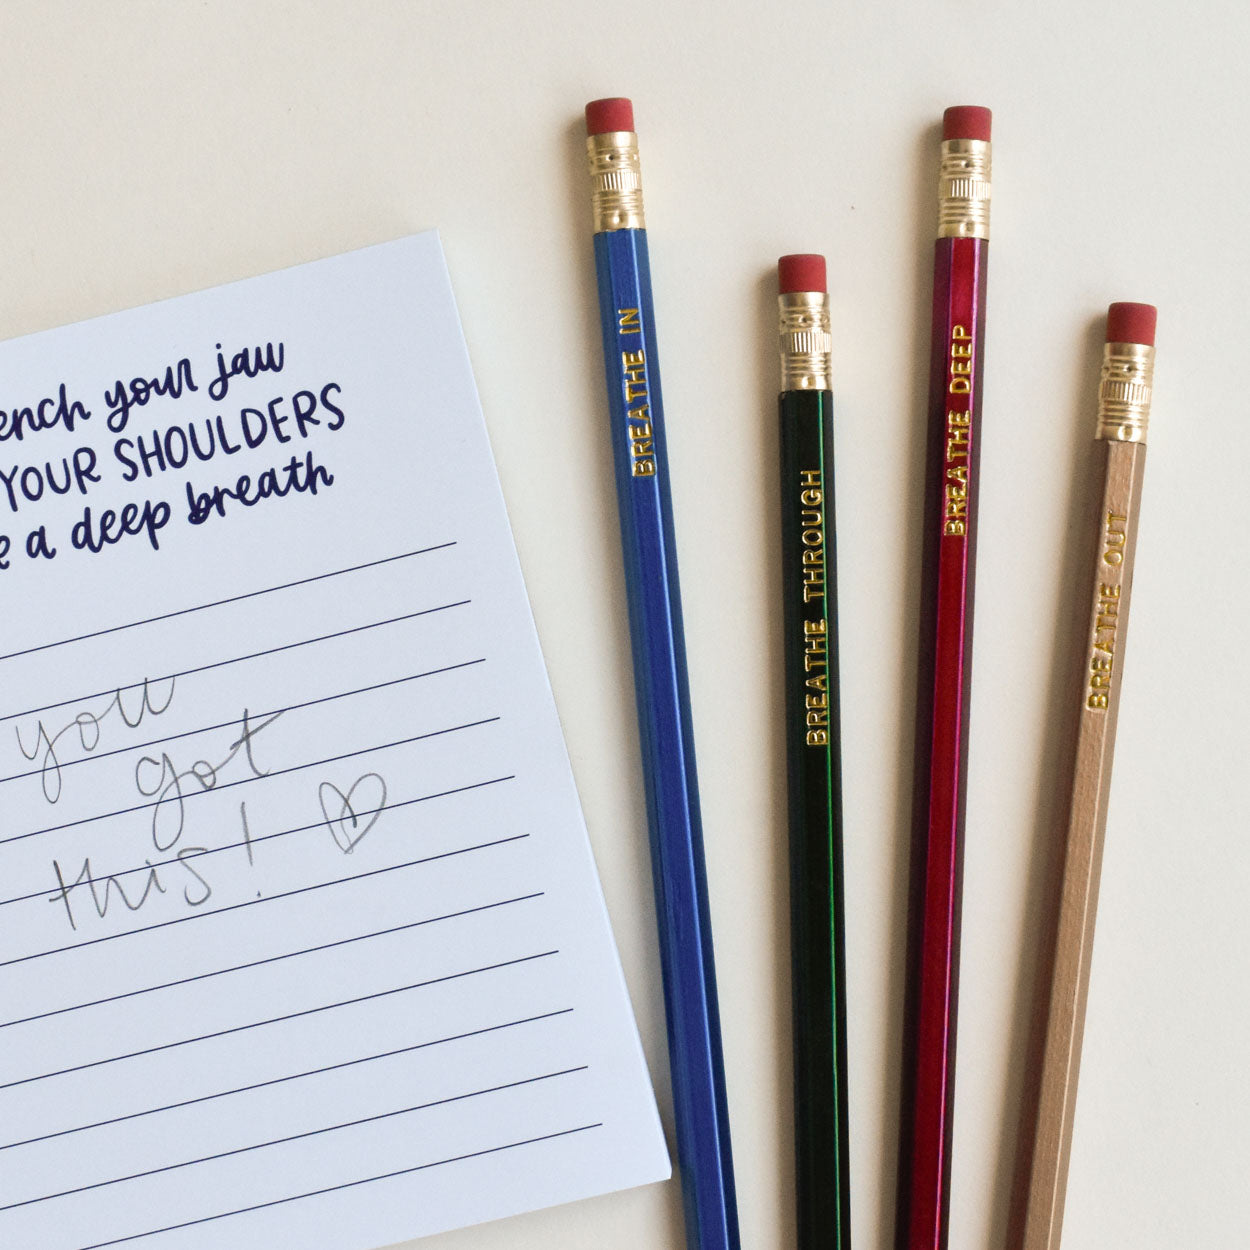 ench your jaw
YOUR SHOULDERS
e a deep breath
you
got
this!
BREATHE IN
BREATHE THROUGH
BREATHE DEEP
BREATHE OUT